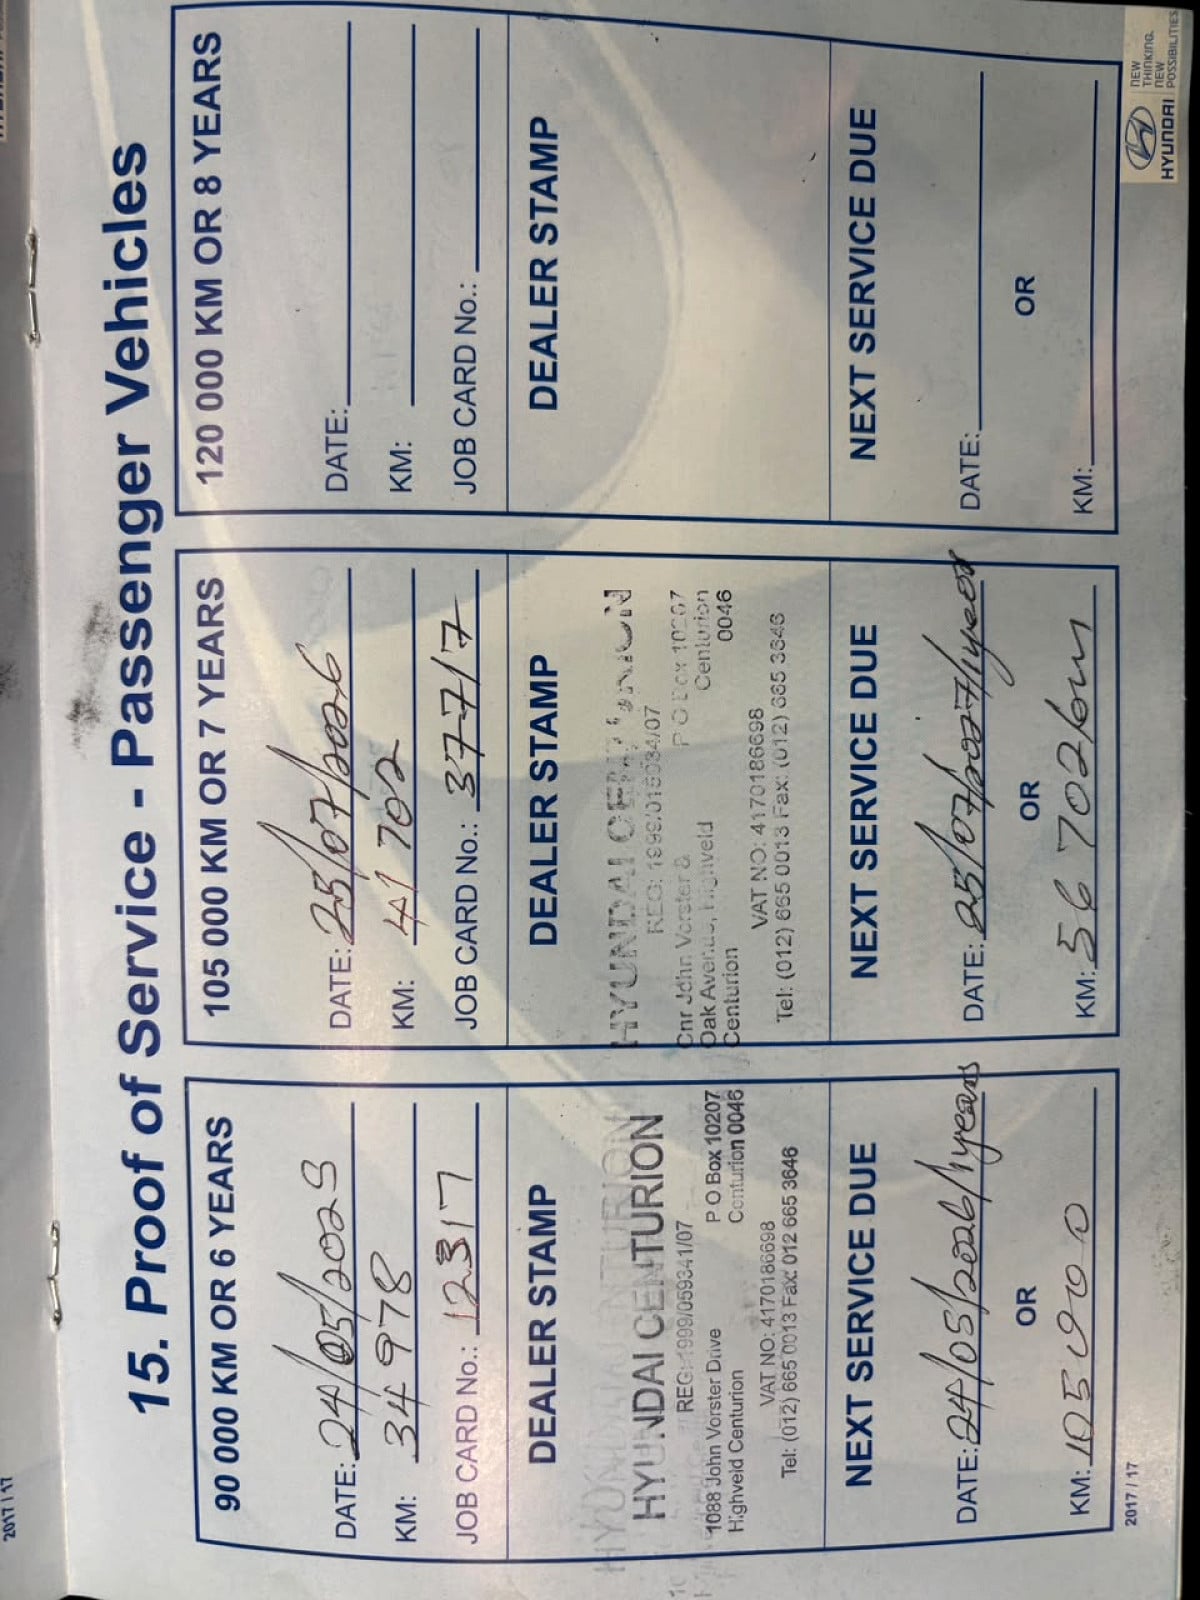 15. Proof of Service - Passenger Vehicles
90 000 KM OR 6 YEARS
DATE: 24/05/2025
KM: 34 978
JOB CARD No.: 12317
DEALER STAMP
HYUNDAI CENTURION
REG: 1999/059341/07
1088 John Vorster Drive P O Box 10207
Highveld Centurion Centurion 0046
VAT NO: 4170186698
Tel: (012) 665 0013 Fax: 012 665 3646
NEXT SERVICE DUE
DATE: 24/05/2026/1years
OR
KM: 105 000
105 000 KM OR 7 YEARS
DATE: 25/07/2026
KM: 41 702
JOB CARD No.: 37717
DEALER STAMP
HYUNDAI CENTURION
Cnr John Vorster & P O Box 10207
Oak Avenue, Highveld Centurion
Centurion 0046
VAT NO: 4170186698
Tel: (012) 665 0013 Fax: (012) 665 3646
NEXT SERVICE DUE
DATE: 25/07/2027/1year
OR
KM: 56 702km
120 000 KM OR 8 YEARS
DATE:
KM:
JOB CARD No.:
DEALER STAMP
NEXT SERVICE DUE
DATE:
OR
KM:
2017 / 17
HYUNDAI
NEW
THINKING.
NEW
POSSIBILITIES.
2017 / 17